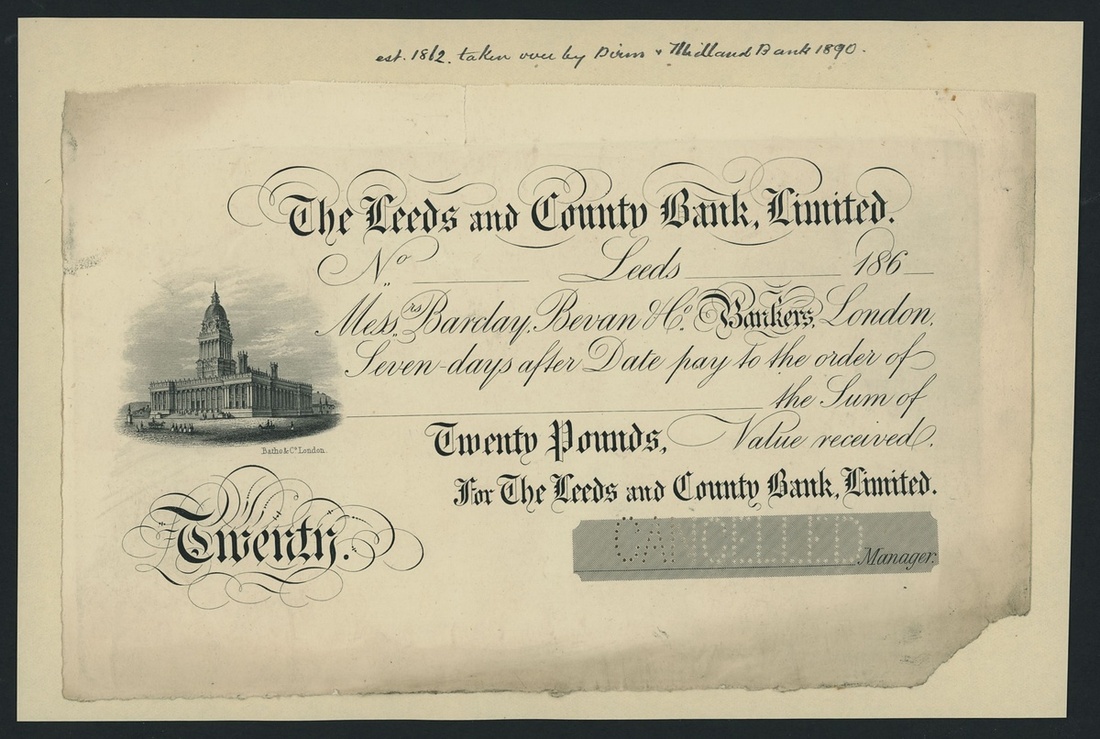 est. 1862. taken over by Birm & Midland Bank 1890.
The Leeds and County Bank, Limited.
No Leeds 186
Messrs Barclay, Bevan & Co. Bankers, London.
Seven days after Date pay to the order of
the Sum of
Twenty Pounds, Value received.
Batho & Co. London.
For The Leeds and County Bank, Limited.
Twenty.
CANCELLED
Manager.